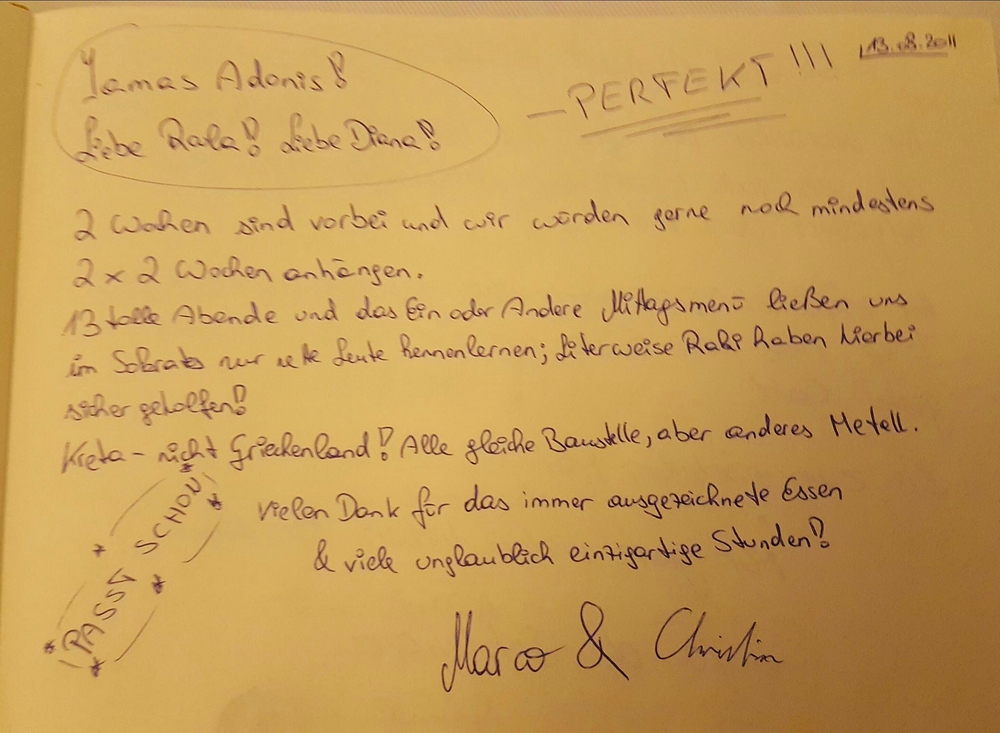 Yamas Adonis!
- PERFEKT !!!
13.08.2011
Liebe Rafa! Liebe Diana!
2 Wochen sind vorbei und wir würden gerne noch mindestens
2 x 2 Wochen anhängen.
13 tolle Abende und das Ein oder Andere Mittagsmenü ließen uns
im Sokrates nur nette Leute kennenlernen; Literweise Raki haben hierbei
sicher geholfen!
Kreta - nicht Griechenland! Alle gleiche Baustelle, aber anderes Metell.
vielen Dank für das immer ausgezeichnete Essen
& viele unglaublich einzigartige Stunden!
PASST SCHON
Marco & Christin